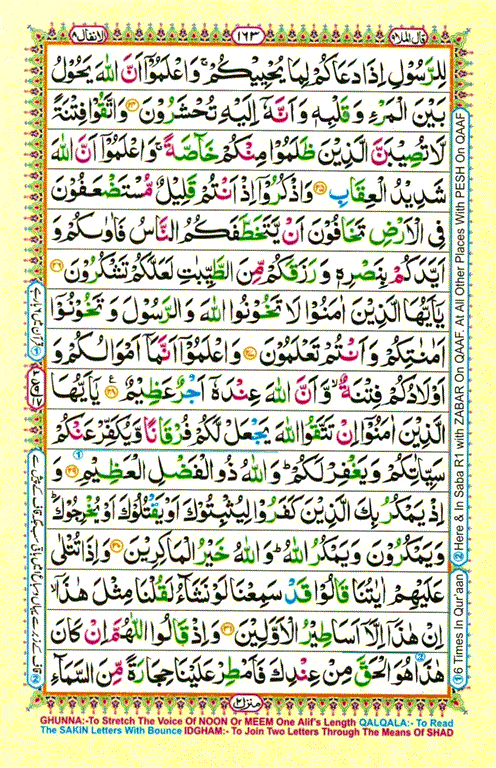 الانفال ٨
١٦٣
قال الملا ٩
لِلرَّسُوۡلِ اِذَا دَعَاكُمۡ لِمَا يُحۡيِيۡكُمۡ‌ۚ وَاعۡلَمُوۡۤا اَنَّ اللّٰهَ يَحُوۡلُ
بَيۡنَ الۡمَرۡءِ وَ قَلۡبِهٖ وَاَنَّهٗۤ اِلَيۡهِ تُحۡشَرُوۡنَ ﴿۲۴﴾ وَاتَّقُوۡا فِتۡنَةً
لَّا تُصِيۡبَنَّ الَّذِيۡنَ ظَلَمُوۡا مِنۡكُمۡ خَآصَّةً‌ ۚ وَاعۡلَمُوۡۤا اَنَّ اللّٰهَ
شَدِيۡدُ الۡعِقَابِ ﴿۲۵﴾ وَاذۡكُرُوۡۤا اِذۡ اَنۡتُمۡ قَلِيۡلٌ مُّسۡتَضۡعَفُوۡنَ
فِى الۡاَرۡضِ تَخَافُوۡنَ اَنۡ يَّتَخَطَّفَكُمُ النَّاسُ فَاٰوٰٮكُمۡ وَ
اَيَّدَكُمۡ بِنَصۡرِهٖ وَرَزَقَكُمۡ مِّنَ الطَّيِّبٰتِ لَعَلَّكُمۡ تَشۡكُرُوۡنَ ﴿۲۶﴾
يٰۤاَيُّهَا الَّذِيۡنَ اٰمَنُوۡا لَا تَخُوۡنُوا اللّٰهَ وَالرَّسُوۡلَ وَ تَخُوۡنُوۡۤا
اَمٰنٰتِكُمۡ وَاَنۡتُمۡ تَعۡلَمُوۡنَ ﴿۲۷﴾ وَاعۡلَمُوۡۤا اَنَّمَاۤ اَمۡوَالُكُمۡ وَ
اَوۡلَادُكُمۡ فِتۡنَةٌ ۙ وَّاَنَّ اللّٰهَ عِنۡدَهٗۤ اَجۡرٌ عَظِيۡمٌ ﴿۲۸﴾ يٰۤاَيُّهَا
الَّذِيۡنَ اٰمَنُوۡۤا اِنۡ تَتَّقُوا اللّٰهَ يَجۡعَلْ لَّكُمۡ فُرۡقَانًا وَّيُكَفِّرۡ عَنۡكُمۡ
سَيِّاٰتِكُمۡ وَيَغۡفِرۡ لَـكُمۡ‌ؕ وَاللّٰهُ ذُو الۡفَضۡلِ الۡعَظِيۡمِ ﴿۲۹﴾ وَ
اِذۡ يَمۡكُرُ بِكَ الَّذِيۡنَ كَفَرُوۡا لِيُثۡبِتُوۡكَ اَوۡ يَقۡتُلُوۡكَ اَوۡ يُخۡرِجُوۡكَ‌ؕ
وَيَمۡكُرُوۡنَ وَيَمۡكُرُ اللّٰهُ‌ؕ وَاللّٰهُ خَيۡرُ الۡمَاكِرِيۡنَ ﴿۳۰﴾ وَاِذَا تُتۡلٰى
عَلَيۡهِمۡ اٰيٰتُنَا قَالُوۡا قَدۡ سَمِعۡنَا لَوۡ نَشَآءُ لَـقُلۡنَا مِثۡلَ هٰذَٓا‌ ۙ
اِنۡ هٰذَاۤ اِلَّاۤ اَسَاطِيۡرُ الۡاَوَّلِيۡنَ ﴿۳۱﴾ وَاِذۡ قَالُوا اللّٰهُمَّ اِنۡ كَانَ
هٰذَا هُوَ الۡحَـقَّ مِنۡ عِنۡدِكَ فَاَمۡطِرۡ عَلَيۡنَا حِجَارَةً مِّنَ السَّمَآءِ
منزل ٢
① 6 Times In Qur'aan ② Here & In Saba R1 with ZABAR On QAAF. At All Other Places With PESH On QAAF
GHUNNA:-To Stretch The Voice Of NOON Or MEEM One Alif's Length QALQALA:- To Read
The SAKIN Letters With Bounce IDGHAM:- To Join Two Letters Through The Means Of SHAD